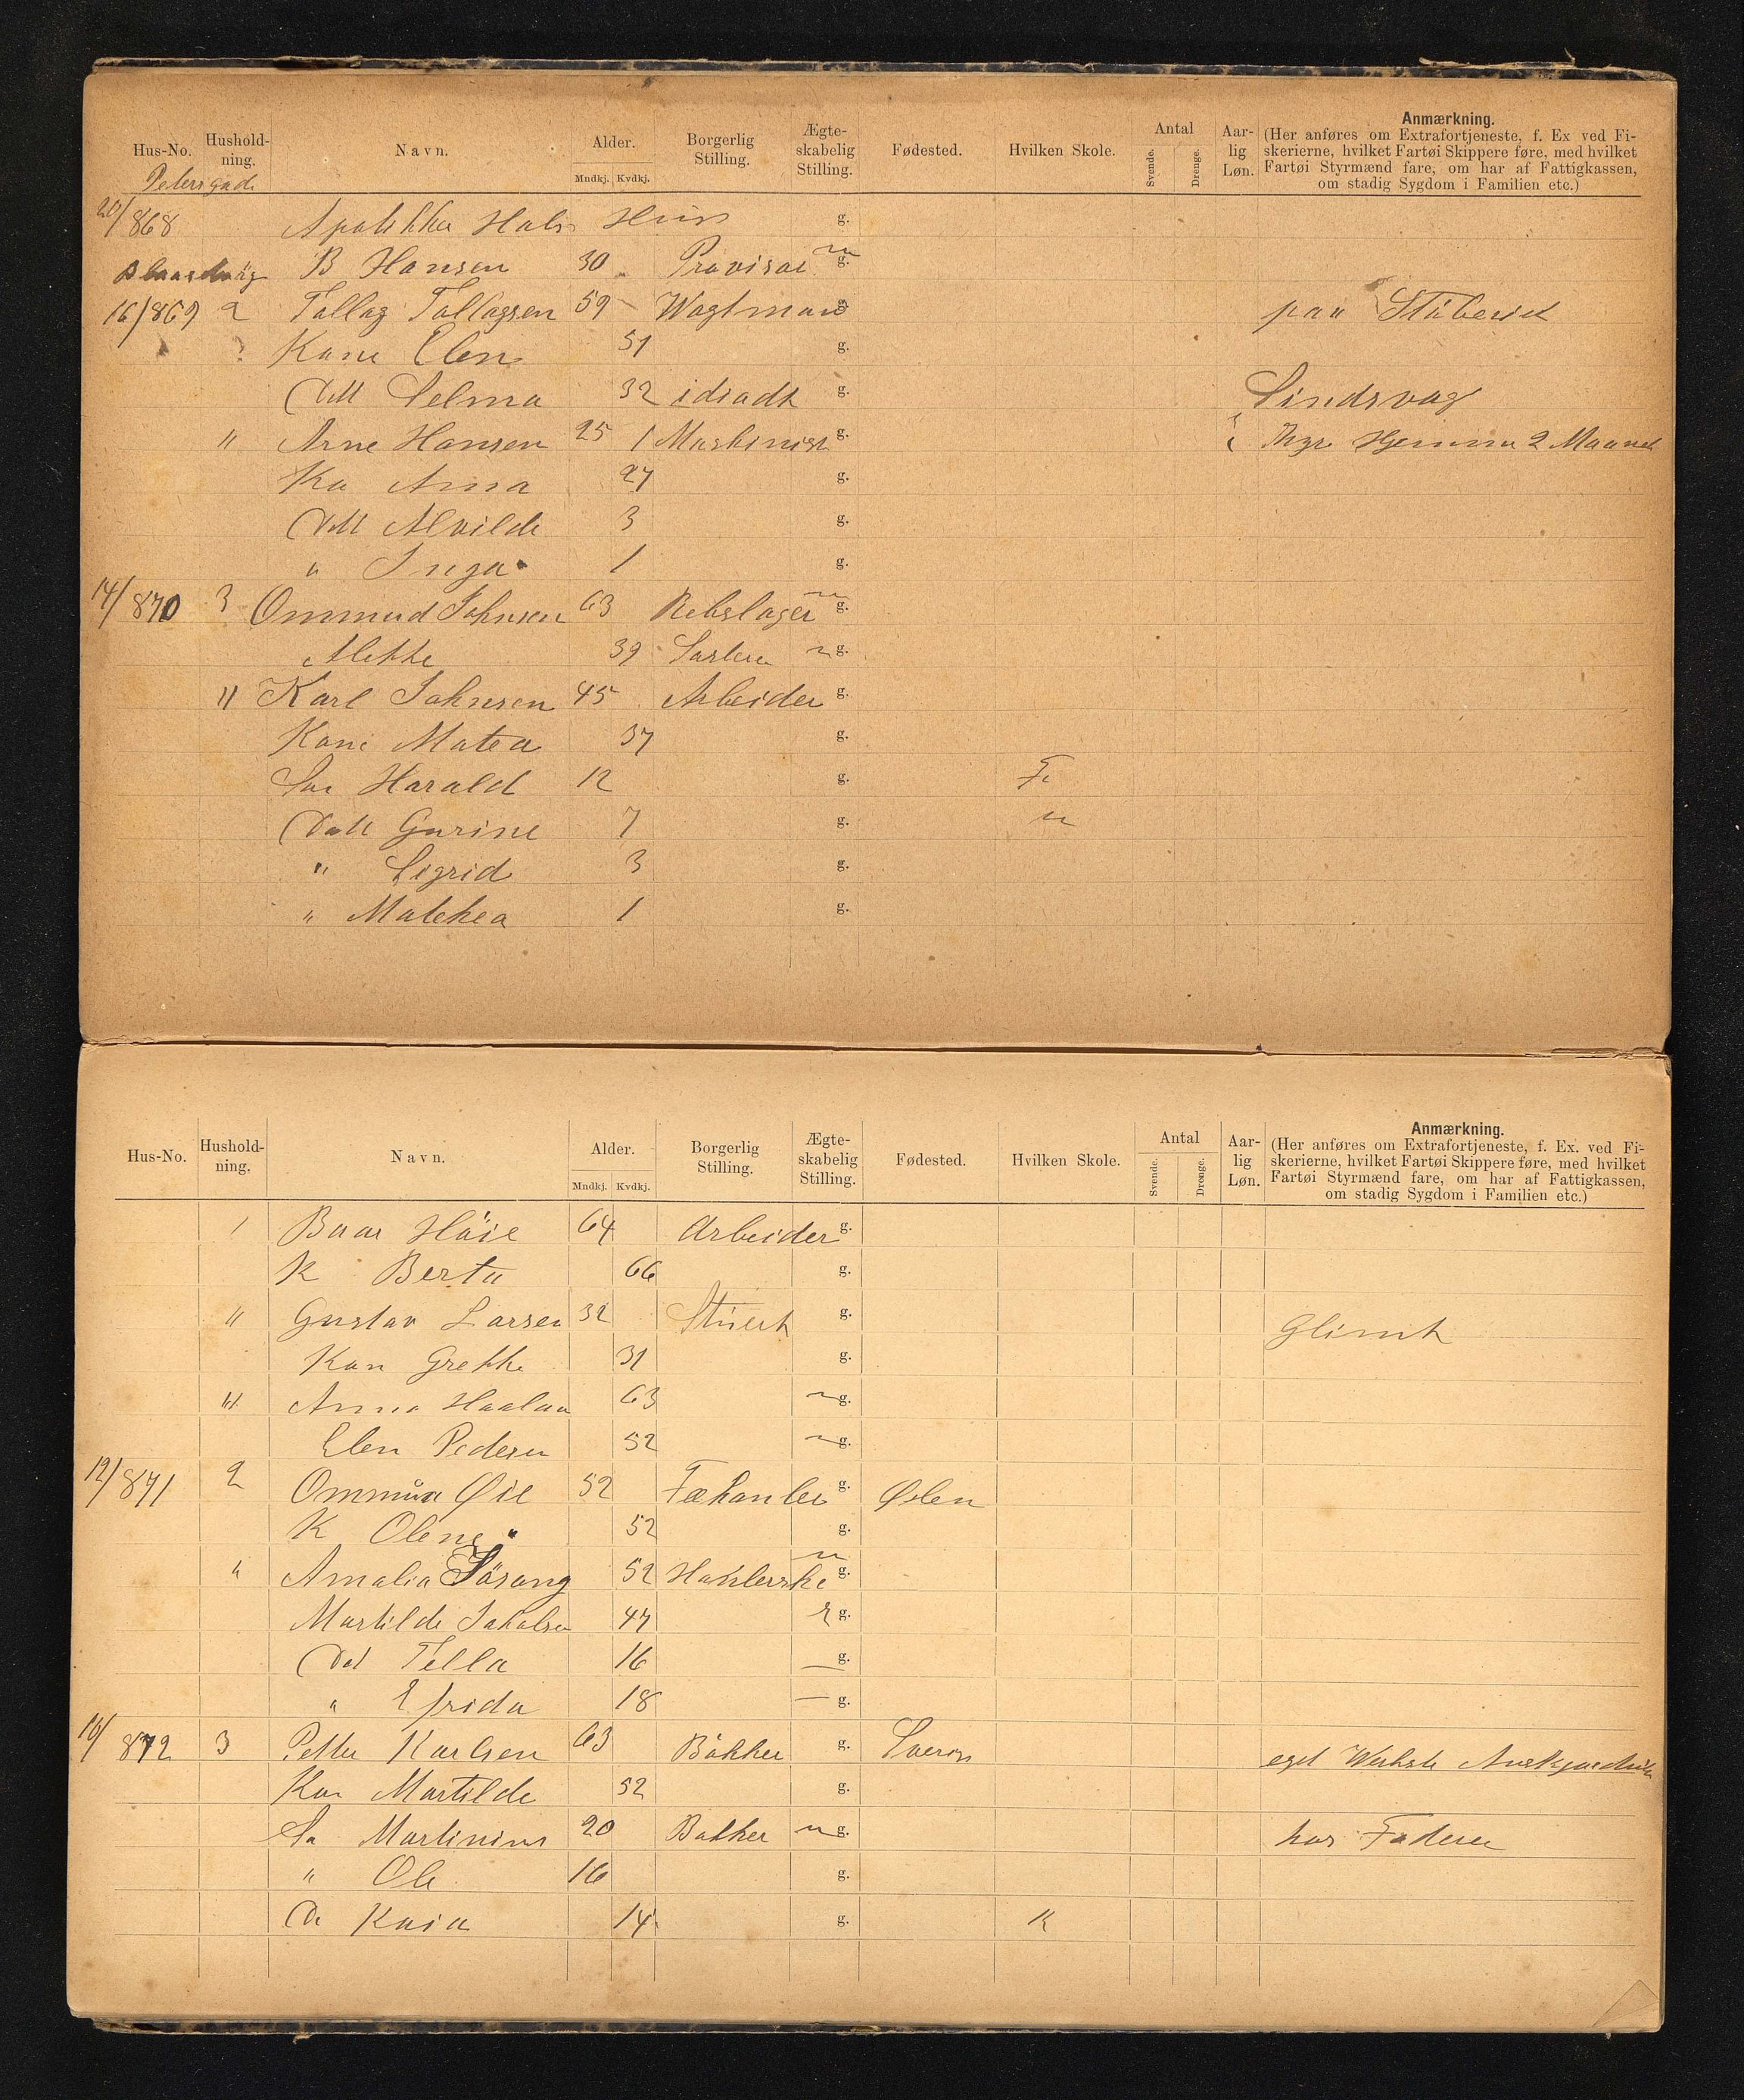 Hus-No. Hushold-ning. Navn. Alder. Mndkj. Kvdkj. Borgerlig Stilling. Ægte-skabelig Stilling. Fødested. Hvilken Skole. Antal Svende. Drenge. Aar-lig Løn. Anmærkning.
(Her anføres om Extrafortjeneste, f. Ex ved Fi-
skerierne, hvilket Fartøi Skippere føre, med hvilket
Fartøi Styrmænd fare, om har af Fattigkassen,
om stadig Sygdom i Familien etc.)
Pedersgade
20/868 Hus g.
B Hansen 30 Provisor u g.
16/869 2 Tallag Tallagsen 59 Wagtmand g. paa
Kone Elen 51 g.
Datt Selma 32 g. Sindsvag
" Arne Hansen 25 1 Maskinist g. Hjemme 2 Maaned
Ko Anna 27 g.
Datt Alvilde 3 g.
" Inga 1 g.
14/870 3 Ommund Johnsen 63 Rebslager u g.
Mekke 39 u g.
" Karl Johnsen 45 Arbeider g.
Kone Matea 37 g.
Søn Harald 12 g. F
Datt Gurine 7 g. "
" Sigrid 3 g.
" Malehea 1 g.
Hus-No. Hushold-ning. Navn. Alder. Mndkj. Kvdkj. Borgerlig Stilling. Ægte-skabelig Stilling. Fødested. Hvilken Skole. Antal Svende. Drenge. Aar-lig Løn. Anmærkning.
(Her anføres om Extrafortjeneste, f. Ex. ved Fi-
skerierne, hvilket Fartøi Skippere føre, med hvilket
Fartøi Styrmænd fare, om har af Fattigkassen,
om stadig Sygdom i Familien etc.)
1 Baar Höie 64 Arbeider g.
K Berta 66 g.
" Gustav Larsen 32 Stuert g. Glimt
Kon Grethe 31 g.
"' Anna Haaland 63 u g.
Elen Pedersen 52 u g.
12/871 2 Ommun Øie 52 g. Ølen
K Olene 52 g.
" Amalia Sörang 52 Haklerske u g.
Martilde Jakobsen 47 g.
Dat Tella 16 — g.
" Efrida 18 — g.
10/872 3 Petter Karlsen 63 Bökker g. Sverig eget
Kon Martilde 52 g.
Sø Martinius 20 Bøkker u g. hos Faderen
" Ole 16 g.
Da Kaia 14 g. K